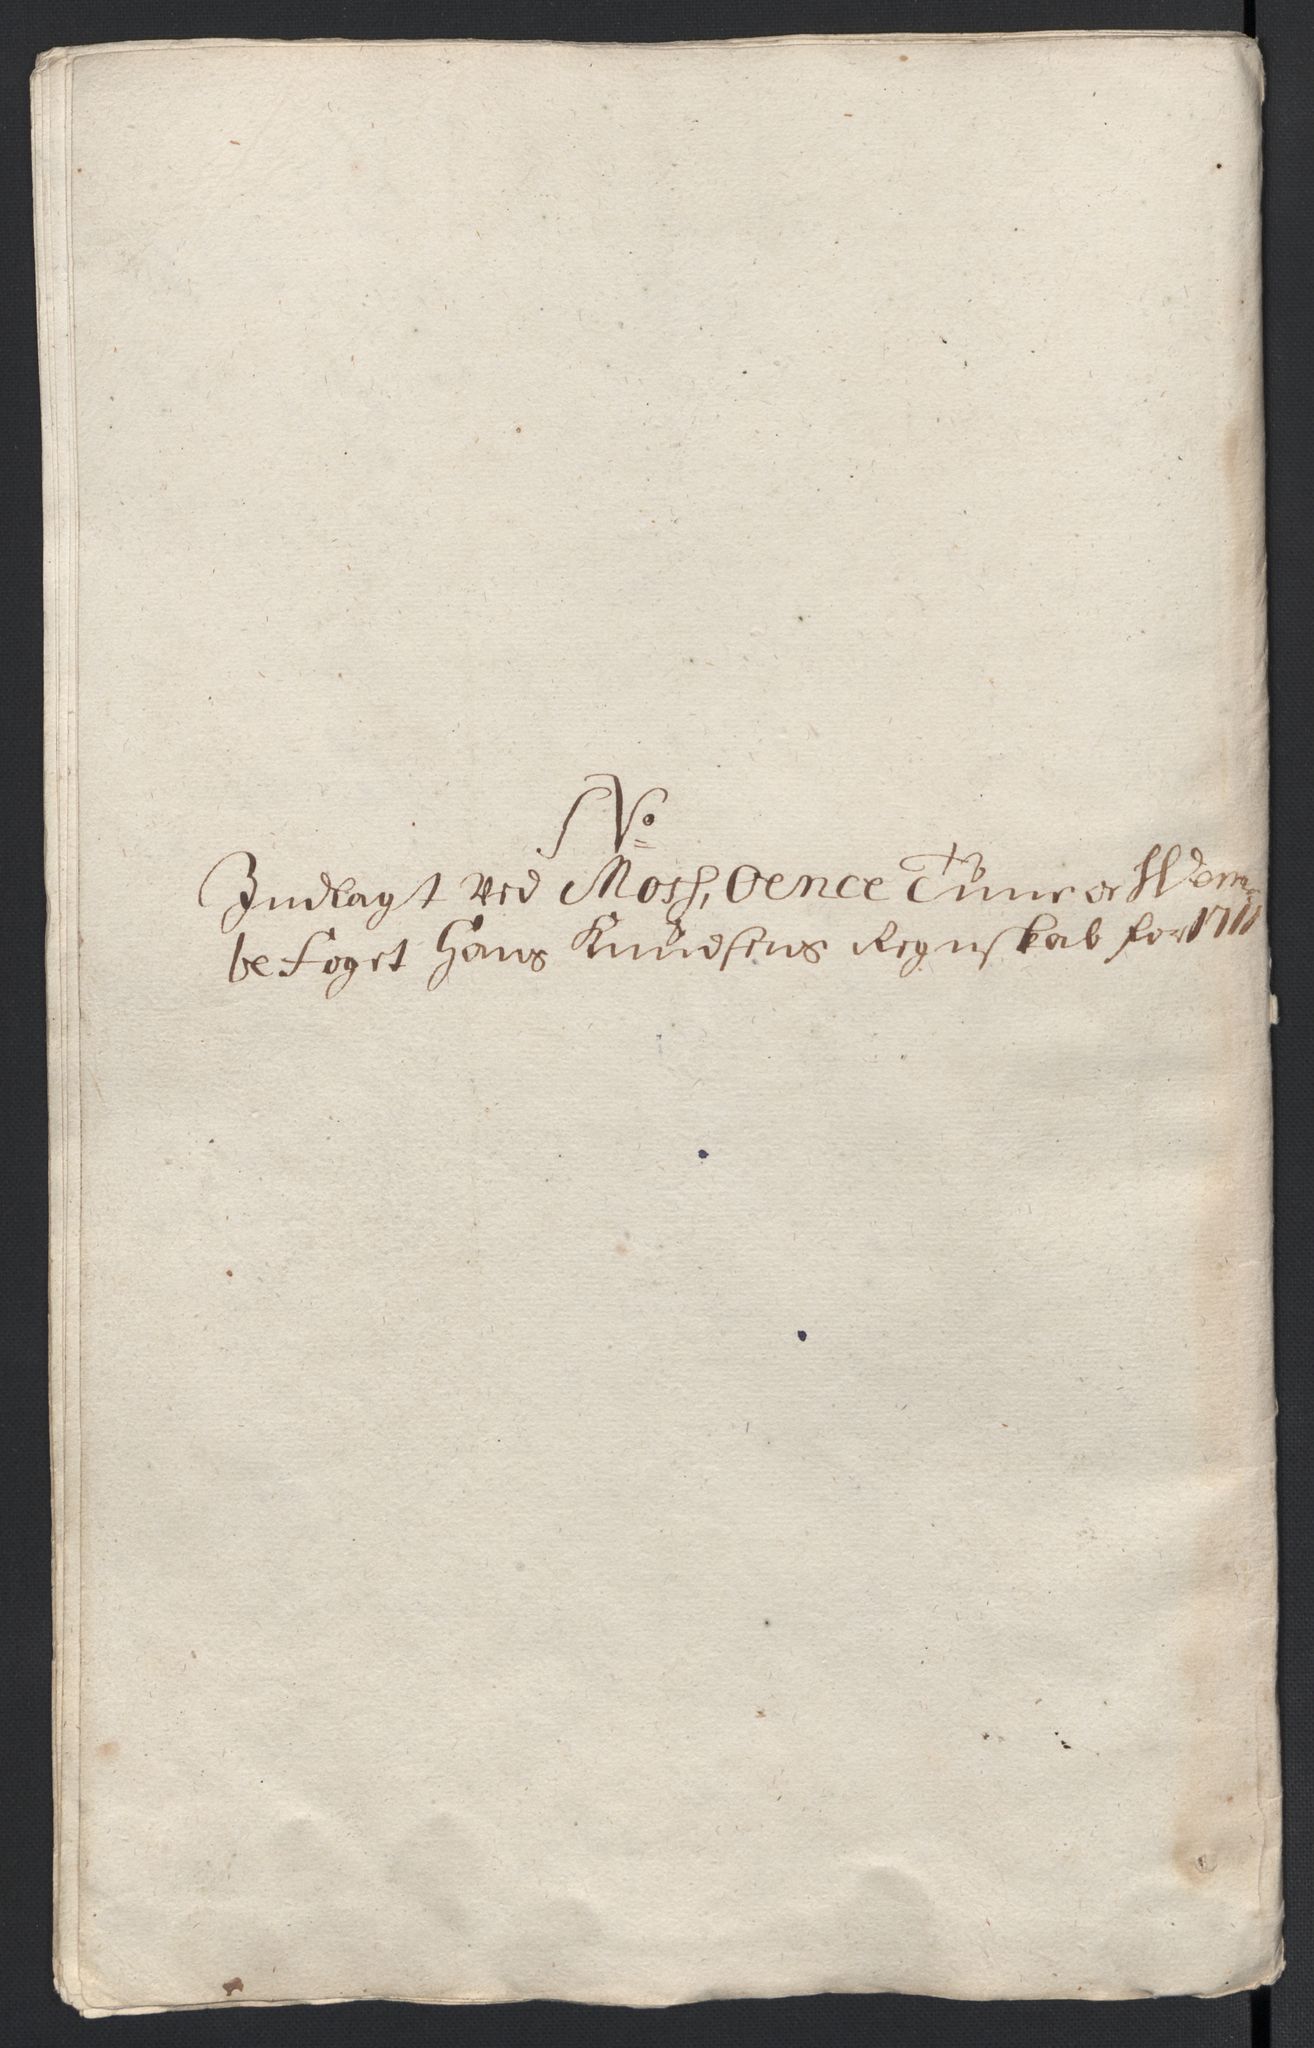 No
Indlagt ved Moss, Oence Tune oc Wem=
be Foget Hans Knudsens Regnskab for 1711